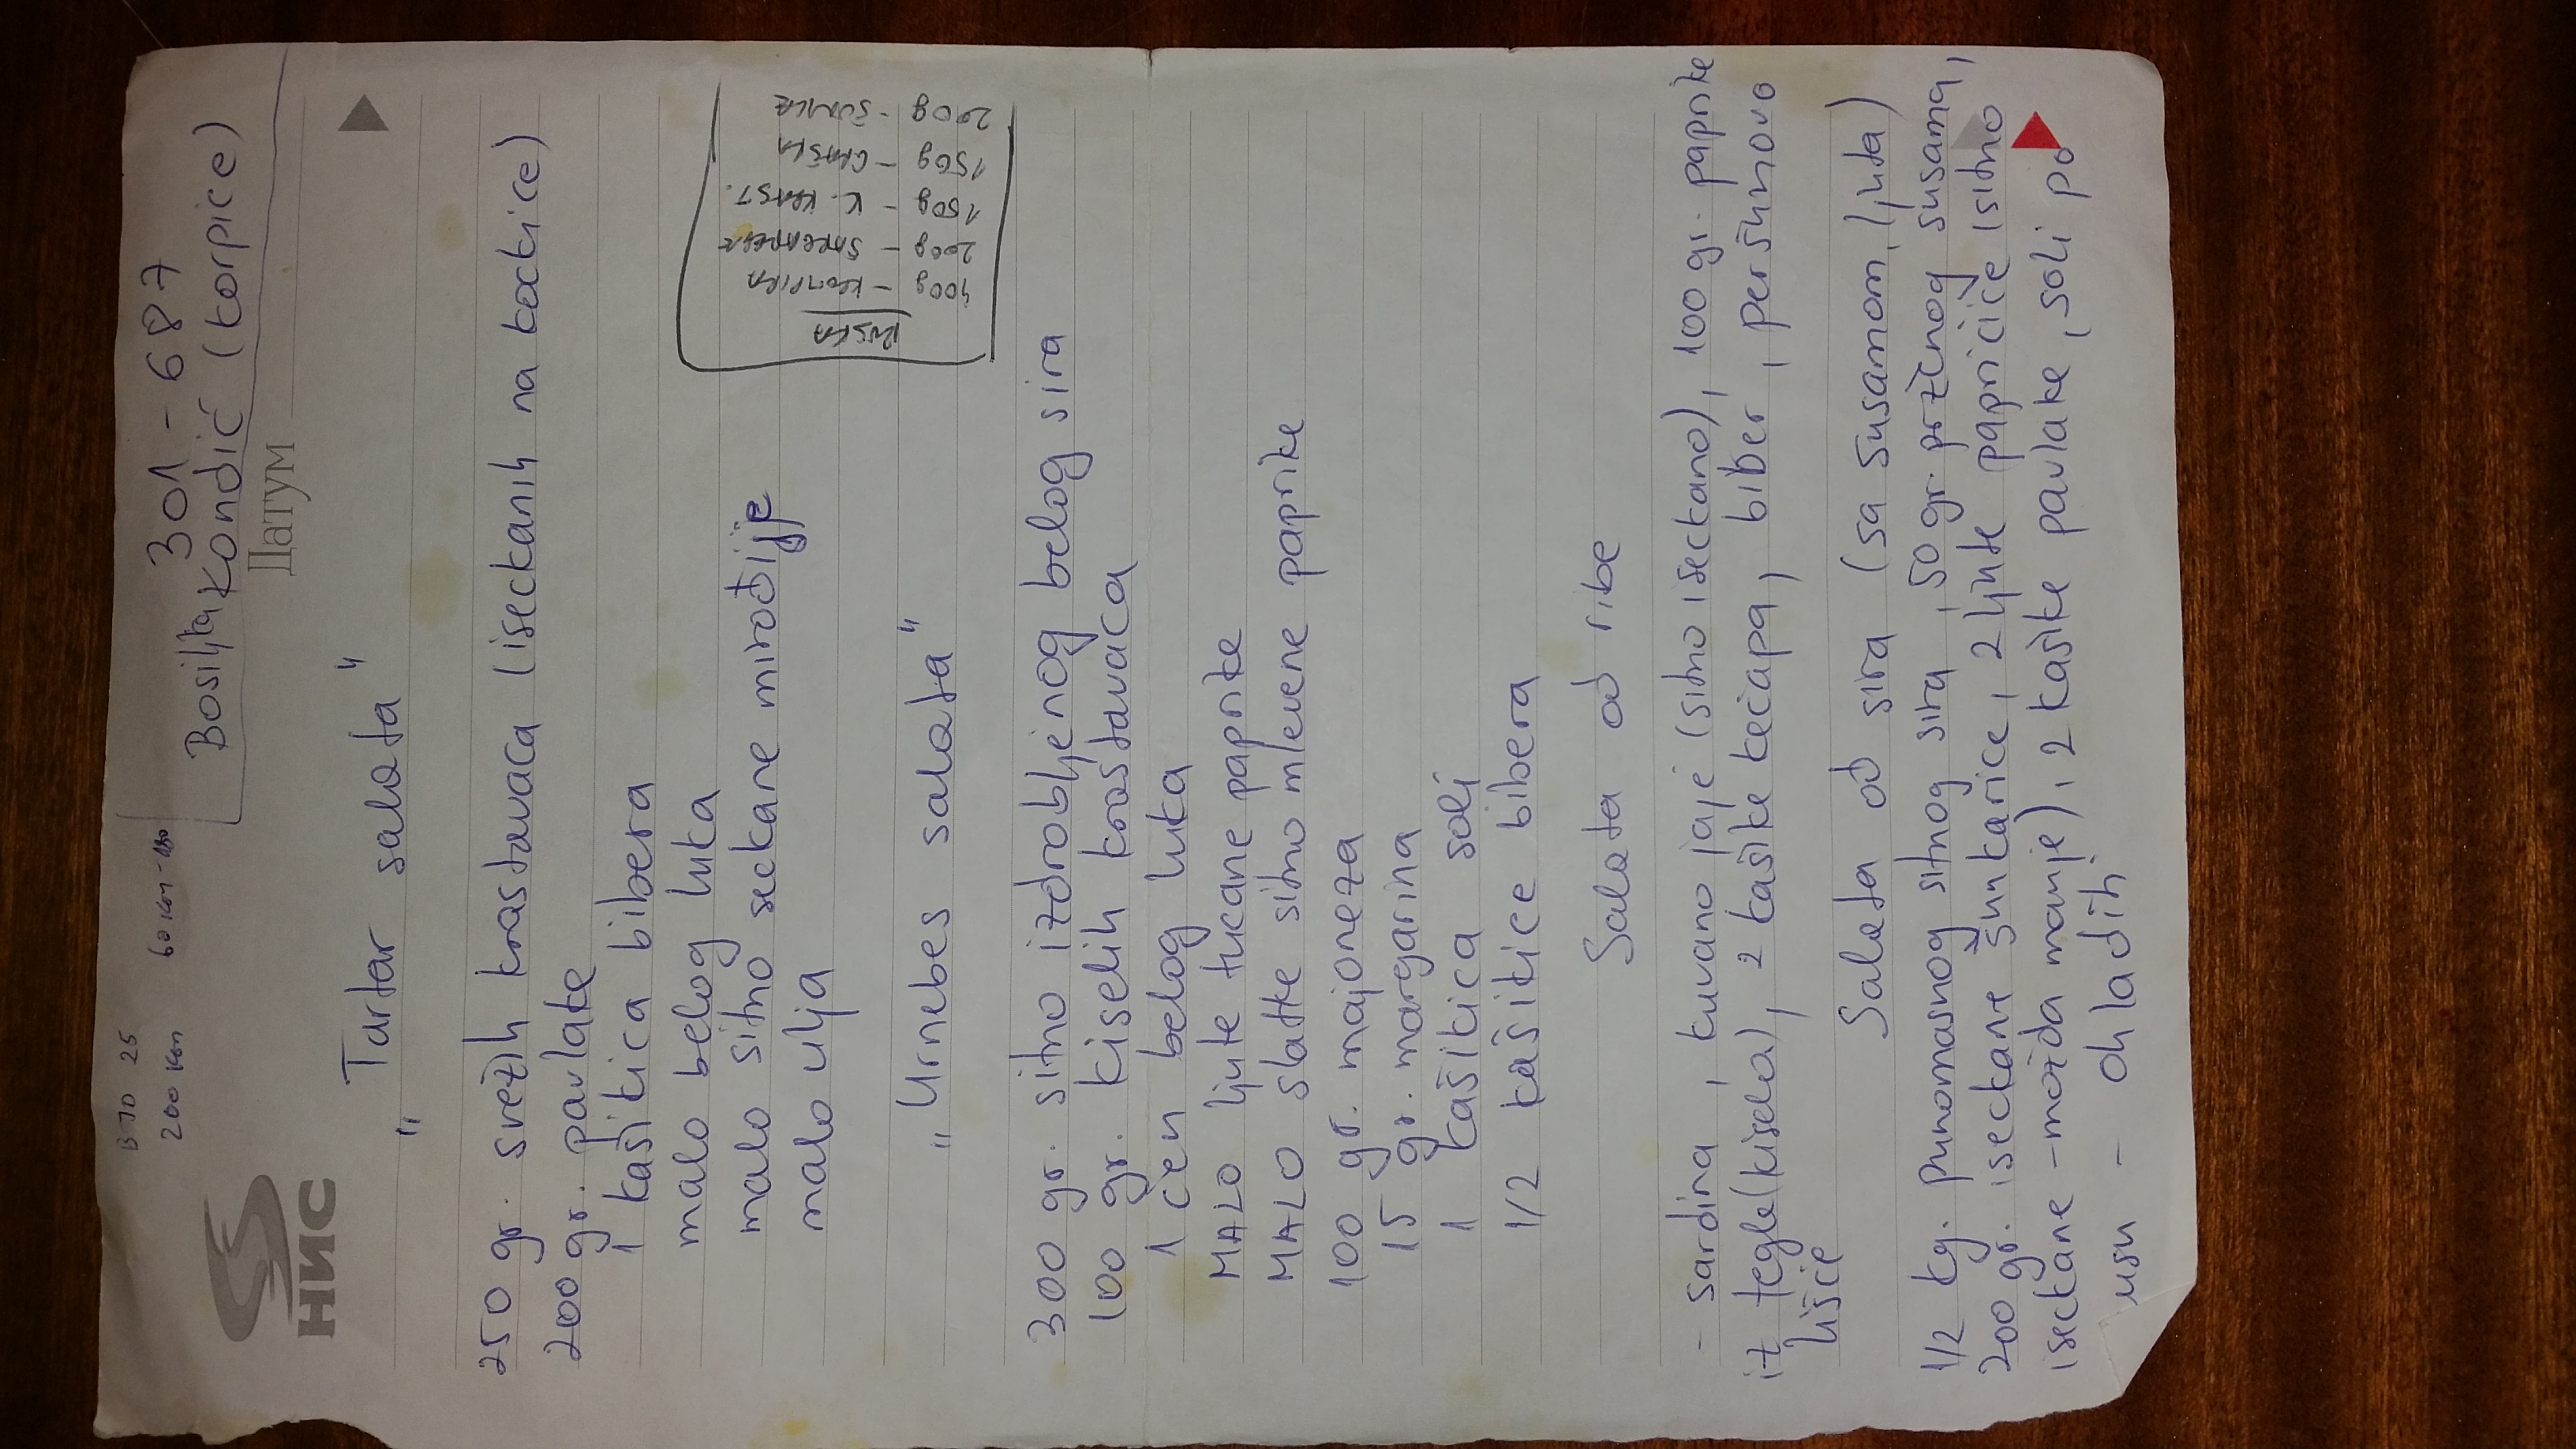 B 10 25
200 Kom 60 Kom - 180
301 - 687
Bosiljka Kondić (korpice)
НИС
Датум
„Tartar salata"
250 gr. svežih krastavaca (iseckanih na kockice)
200 gr. pavlake
1 kašikica bibera
malo belog luka
malo sitno seckane mirođije
malo ulja
RUSKA
400g - KROMPIRA
200g - ŠARGAREPA
150g - K. KRAST.
150g - GRAŠKA
200g - ŠUNKE
„Urnebes salata"
300 gr. sitno izdrobljenog belog sira
100 gr. kiselih krastavaca
1 čen belog luka
MALO ljute tucane paprike
MALO slatke sitno mlevene paprike
100 gr. majoneza
15 gr. margarina
1 kašikica soli
1/2 kašikice bibera
Salata od ribe
- sardina, kuvano jaje (sitno iseckano), 100 gr. paprike
iz tegle (kisela), 2 kašike kečapa, biber, peršunovo
lišće
Salata od sira (sa susamom, ljuta)
1/2 kg. punomasnog sitnog sira, 50 gr. prženog susama,
200 gr. iseckane šunkarice, 2 ljute papričice (sitno
iseckane - možda manje), 2 kašike pavlake, soli po
usu - ohladiti